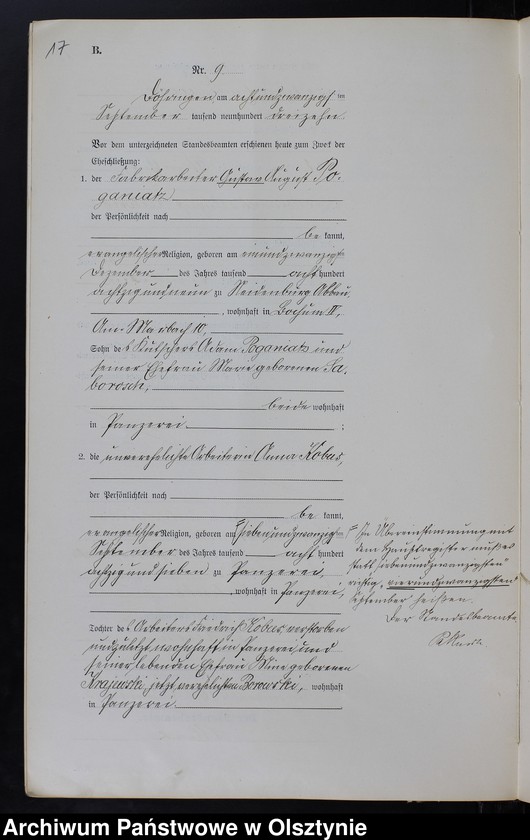 17
B.
Nr. 9
Döhringen, am achtundzwanzigsten
September tausend neunhundert dreizehn.
Vor dem unterzeichneten Standesbeamten erschienen heute zum Zweck der
Eheschließung:
1. der Fabrikarbeiter Gustav August Po-
ganiatz
der Persönlichkeit nach
be kannt,
evangelischer Religion, geboren am einundzwanzigsten
Dezember des Jahres tausend acht hundert
achtzig und neun zu Neidenburg Abbau,
, wohnhaft in Bochum III,
Am Marbach 10,
Sohn des Kutschers Adam Poganiatz und
seiner Ehefrau Marie geborenen Sa-
borosch,
beide wohnhaft
in Panzerei. ;
2. die unverehelichte Arbeiterin Anna Kobus,
der Persönlichkeit nach
be kannt,
evangelischer Religion, geboren am siebenundzwanzigsten
September des Jahres tausend acht hundert
achtzig und sieben zu Panzerei,
, wohnhaft in Panzerei,
Tochter des Arbeiters Friedrich Kobus, verstorben
und zuletzt wohnhaft in Panzerei, und
seiner lebenden Ehefrau Mine geborenen
Krajewski, jetzt verehelichten Borowski, wohnhaft
in Panzerei.
In Übereinstimmung mit
dem Hauptregister muß es
statt „siebenundzwanzigsten"
richtig „vierundzwanzigsten"
September heißen.
Der Standesbeamte
Archiwum Państwowe w Olsztynie